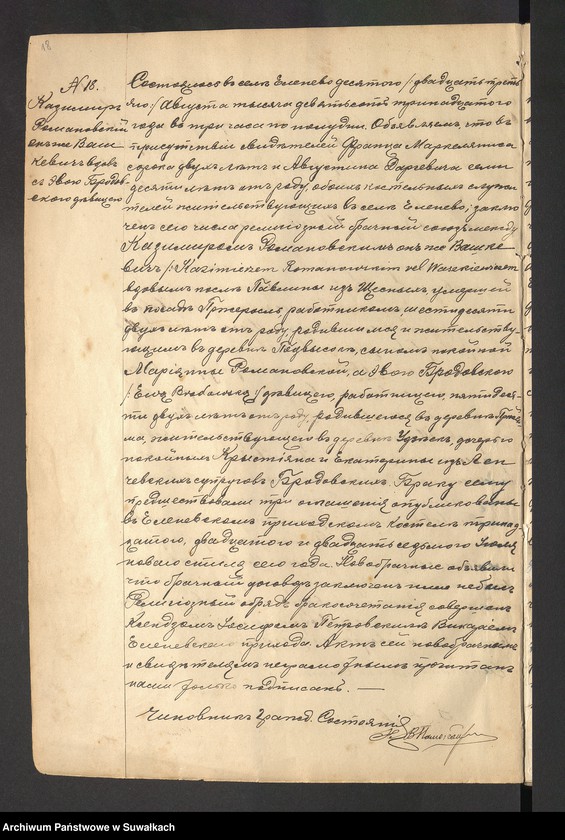 18
N 18.
Казимиръ
Романовский
онъ же Ваш
кевичъ вдов.
съ Эвою Бродов
скою дѣвицею
Состоялось въ селѣ Еленево десятого /: двадцать треть
яго :/ Августа тысяча девятьсотъ тринадцатого
года въ три часа по полудни. Объявляемъ, что въ
присутствіи свидѣтелей Франца
сорока двухъ лѣтъ и Августина семи
десяти лѣтъ отъ роду, обоихъ костельныхъ служи
телей жительствующихъ въ селѣ Еленево; заклю
ченъ сего числа религіозный брачный союзъ между
Казимиромъ Романовскимъ онъ же Вашке
вичъ /: Kazimierzem Romanowskim vel
вдовымъ послѣ Павлины изъ умершей
въ посадѣ Пржеросль, работникомъ, шестидесяти
двухъ лѣтъ отъ роду, родившимся и жительству
ющимъ въ деревнѣ Подвысоке, сыномъ покойной
Маріянны Романовской, и Эвою Бродовскою
/: Ewą Brodowską :/ дѣвицею, работницею, пятидеся
ти двухъ лѣтъ отъ роду, родившеюся въ деревнѣ
жительствующею въ деревнѣ Удзѣекъ, дочерью
покойныхъ Крыстіяна и Екатерины изъ
супруговъ Бродовскихъ. Браку сему
предшествовали три оглашенія опубликованныя
въ Еленевскомъ приходскомъ костелѣ тринад
цатого, двадцатого и двадцать седьмого Іюля
новаго стиля сего года. Новобрачные объявили
что брачный договоръ заключенъ ими не былъ
Религіозный обрядъ бракосочетанія совершенъ
Ксендзомъ Іосифомъ Петровскимъ Викаріемъ
Еленевскаго прихода. Актъ сей новобрачнымъ
и свидѣтелямъ неграмотнымъ прочитанъ
нами только подписанъ. —
Чиновникъ Гражд. Состоянія
Archiwum Państwowe w Suwałkach